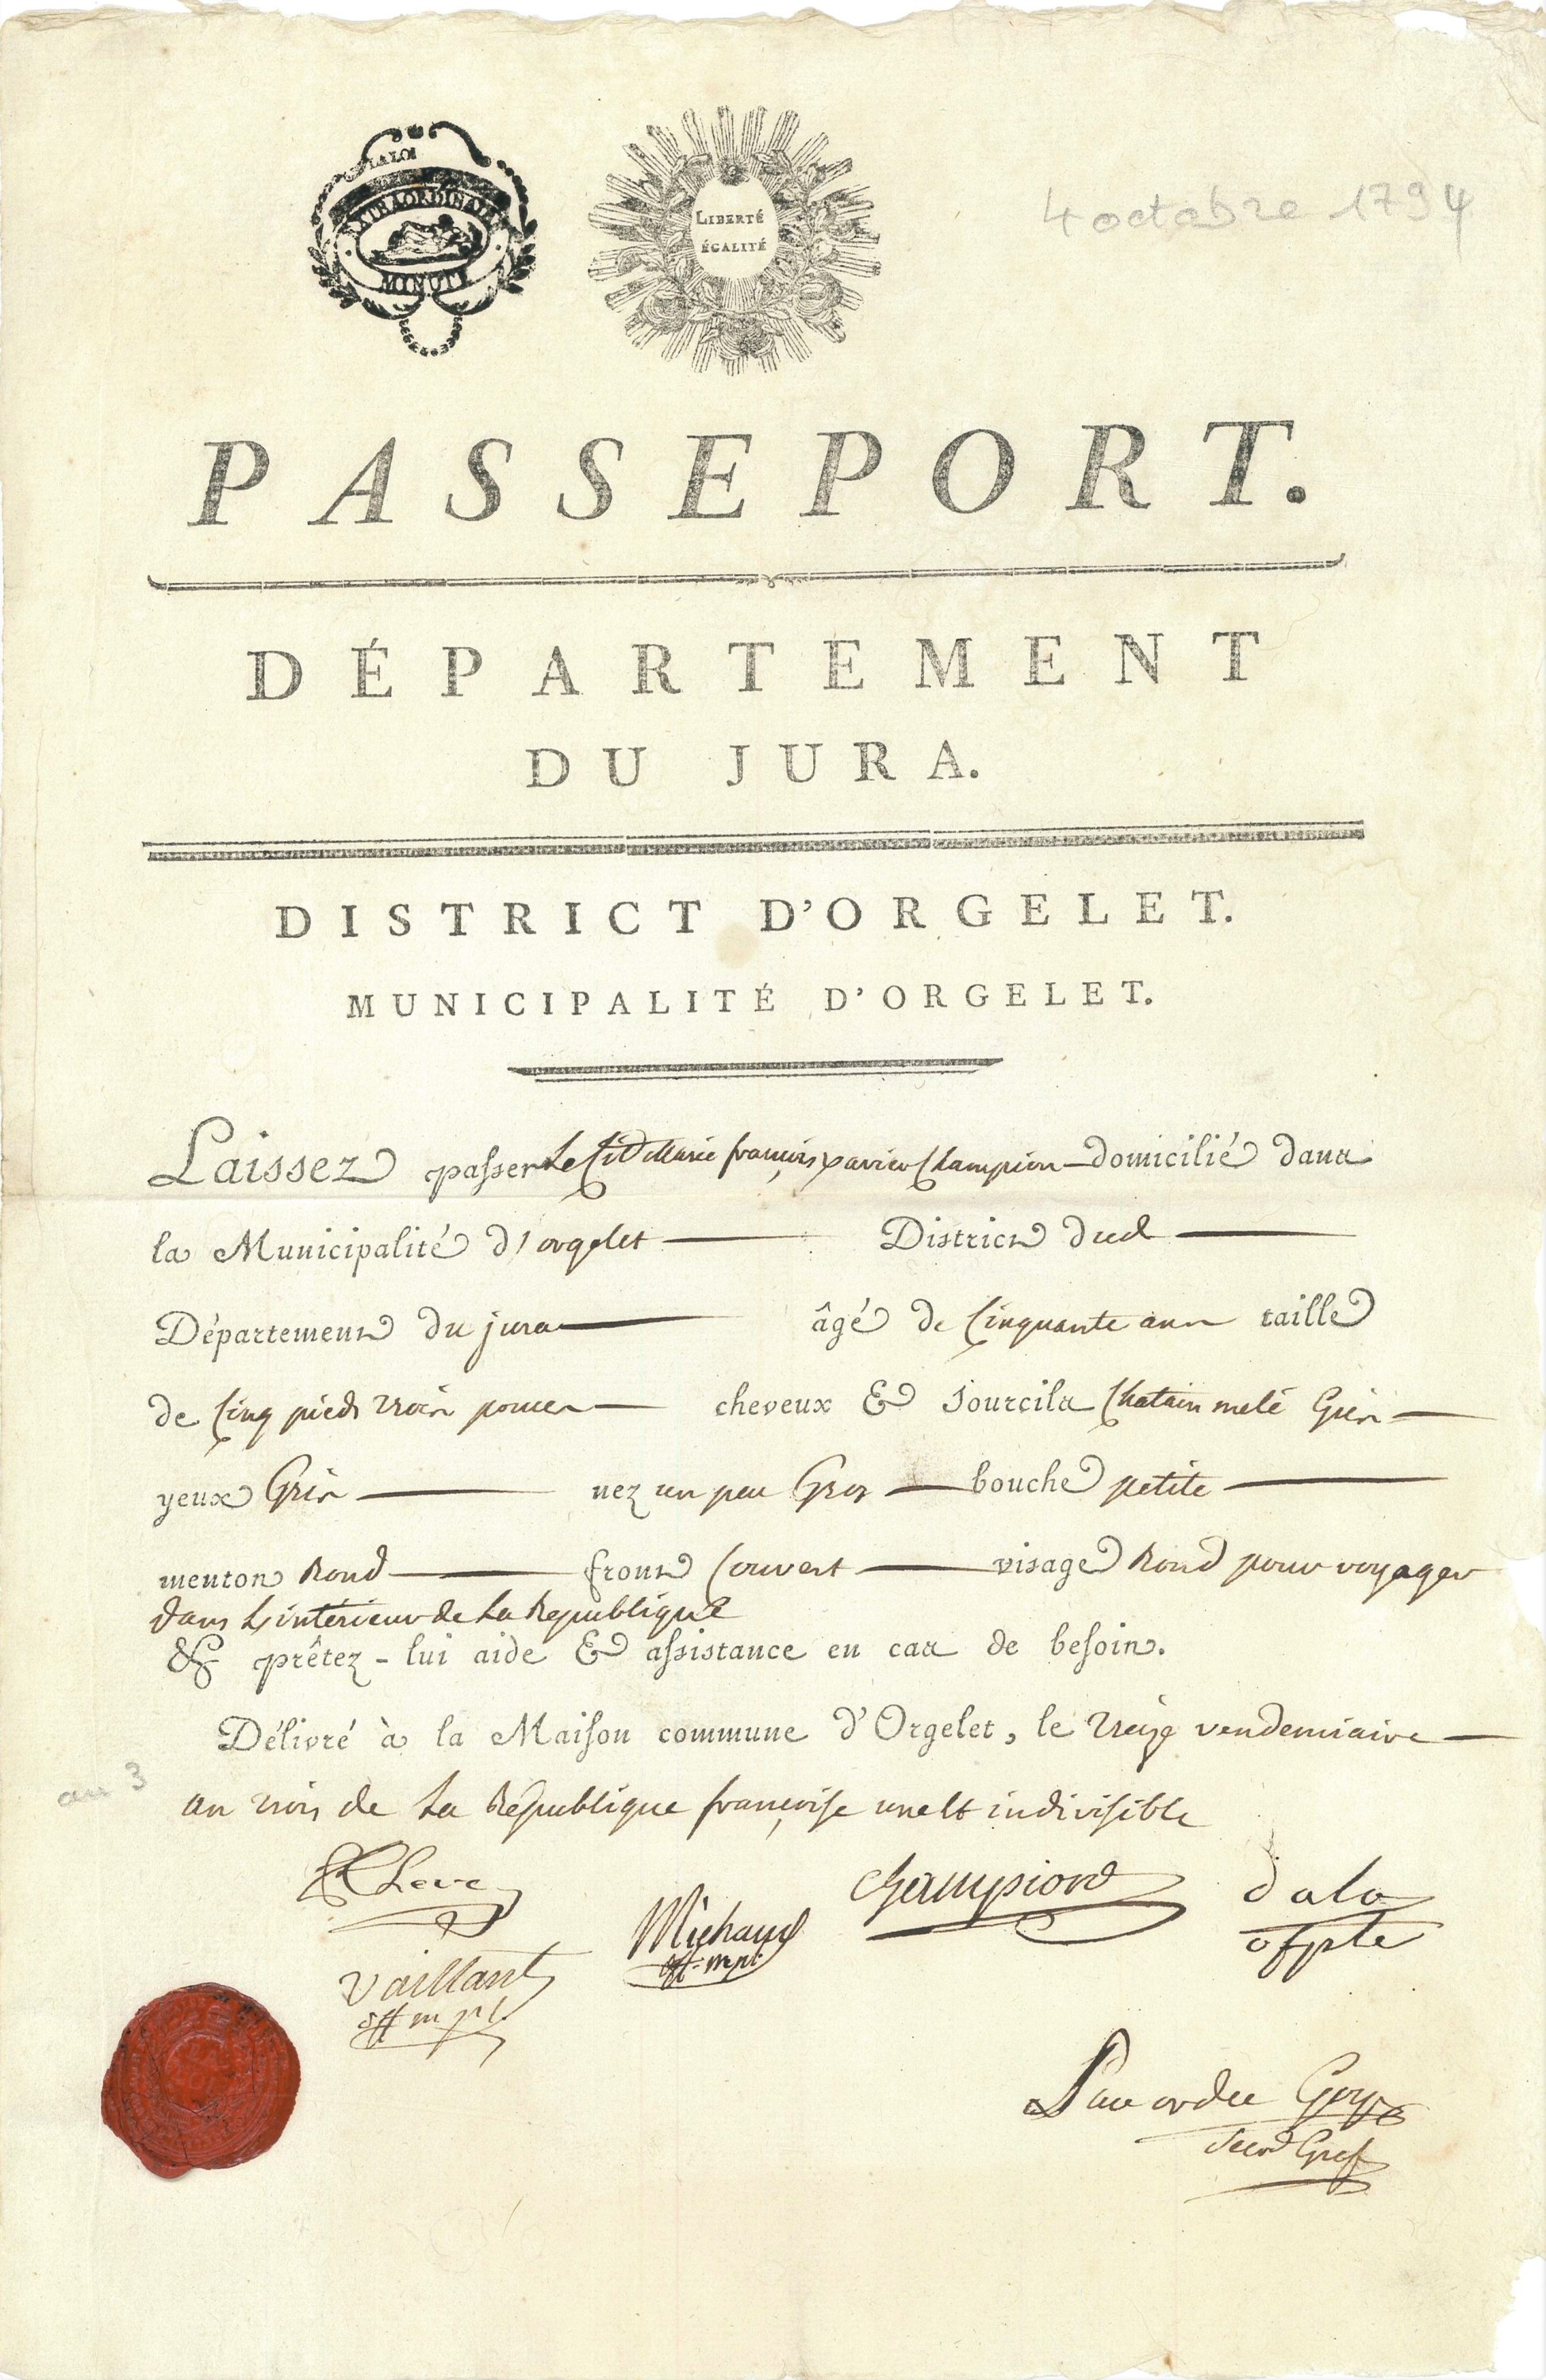 LA LOI
EXTRAORDINAIRE
MINUTE
LIBERTÉ
ÉGALITÉ
4 octobre 1794
PASSEPORT.
DÉPARTEMENT
DU JURA.
DISTRICT D'ORGELET.
MUNICIPALITÉ D'ORGELET.
Laissez passer Le Cit Marie françois xavier Champion domicilié dans
la Municipalité d'orgelet District dud
Département du jura âgé de Cinquante ans taille
de Cinq pieds trois pouces cheveux & sourcils Chatain melé Gris
yeux Gris nez un peu Gros bouche petite
menton Rond front Couvert visage Rond pour voyager
dans L'intérieur de La Republique
& prêtez-lui aide & assistance en cas de besoin.
Délivré à la Maison commune d'Orgelet, le treize vendemiaire
an 3
an trois de La République françoise une et indivisible
Champion
Michaud
off. mpl.
vaillant
off mpl.
Par ordre